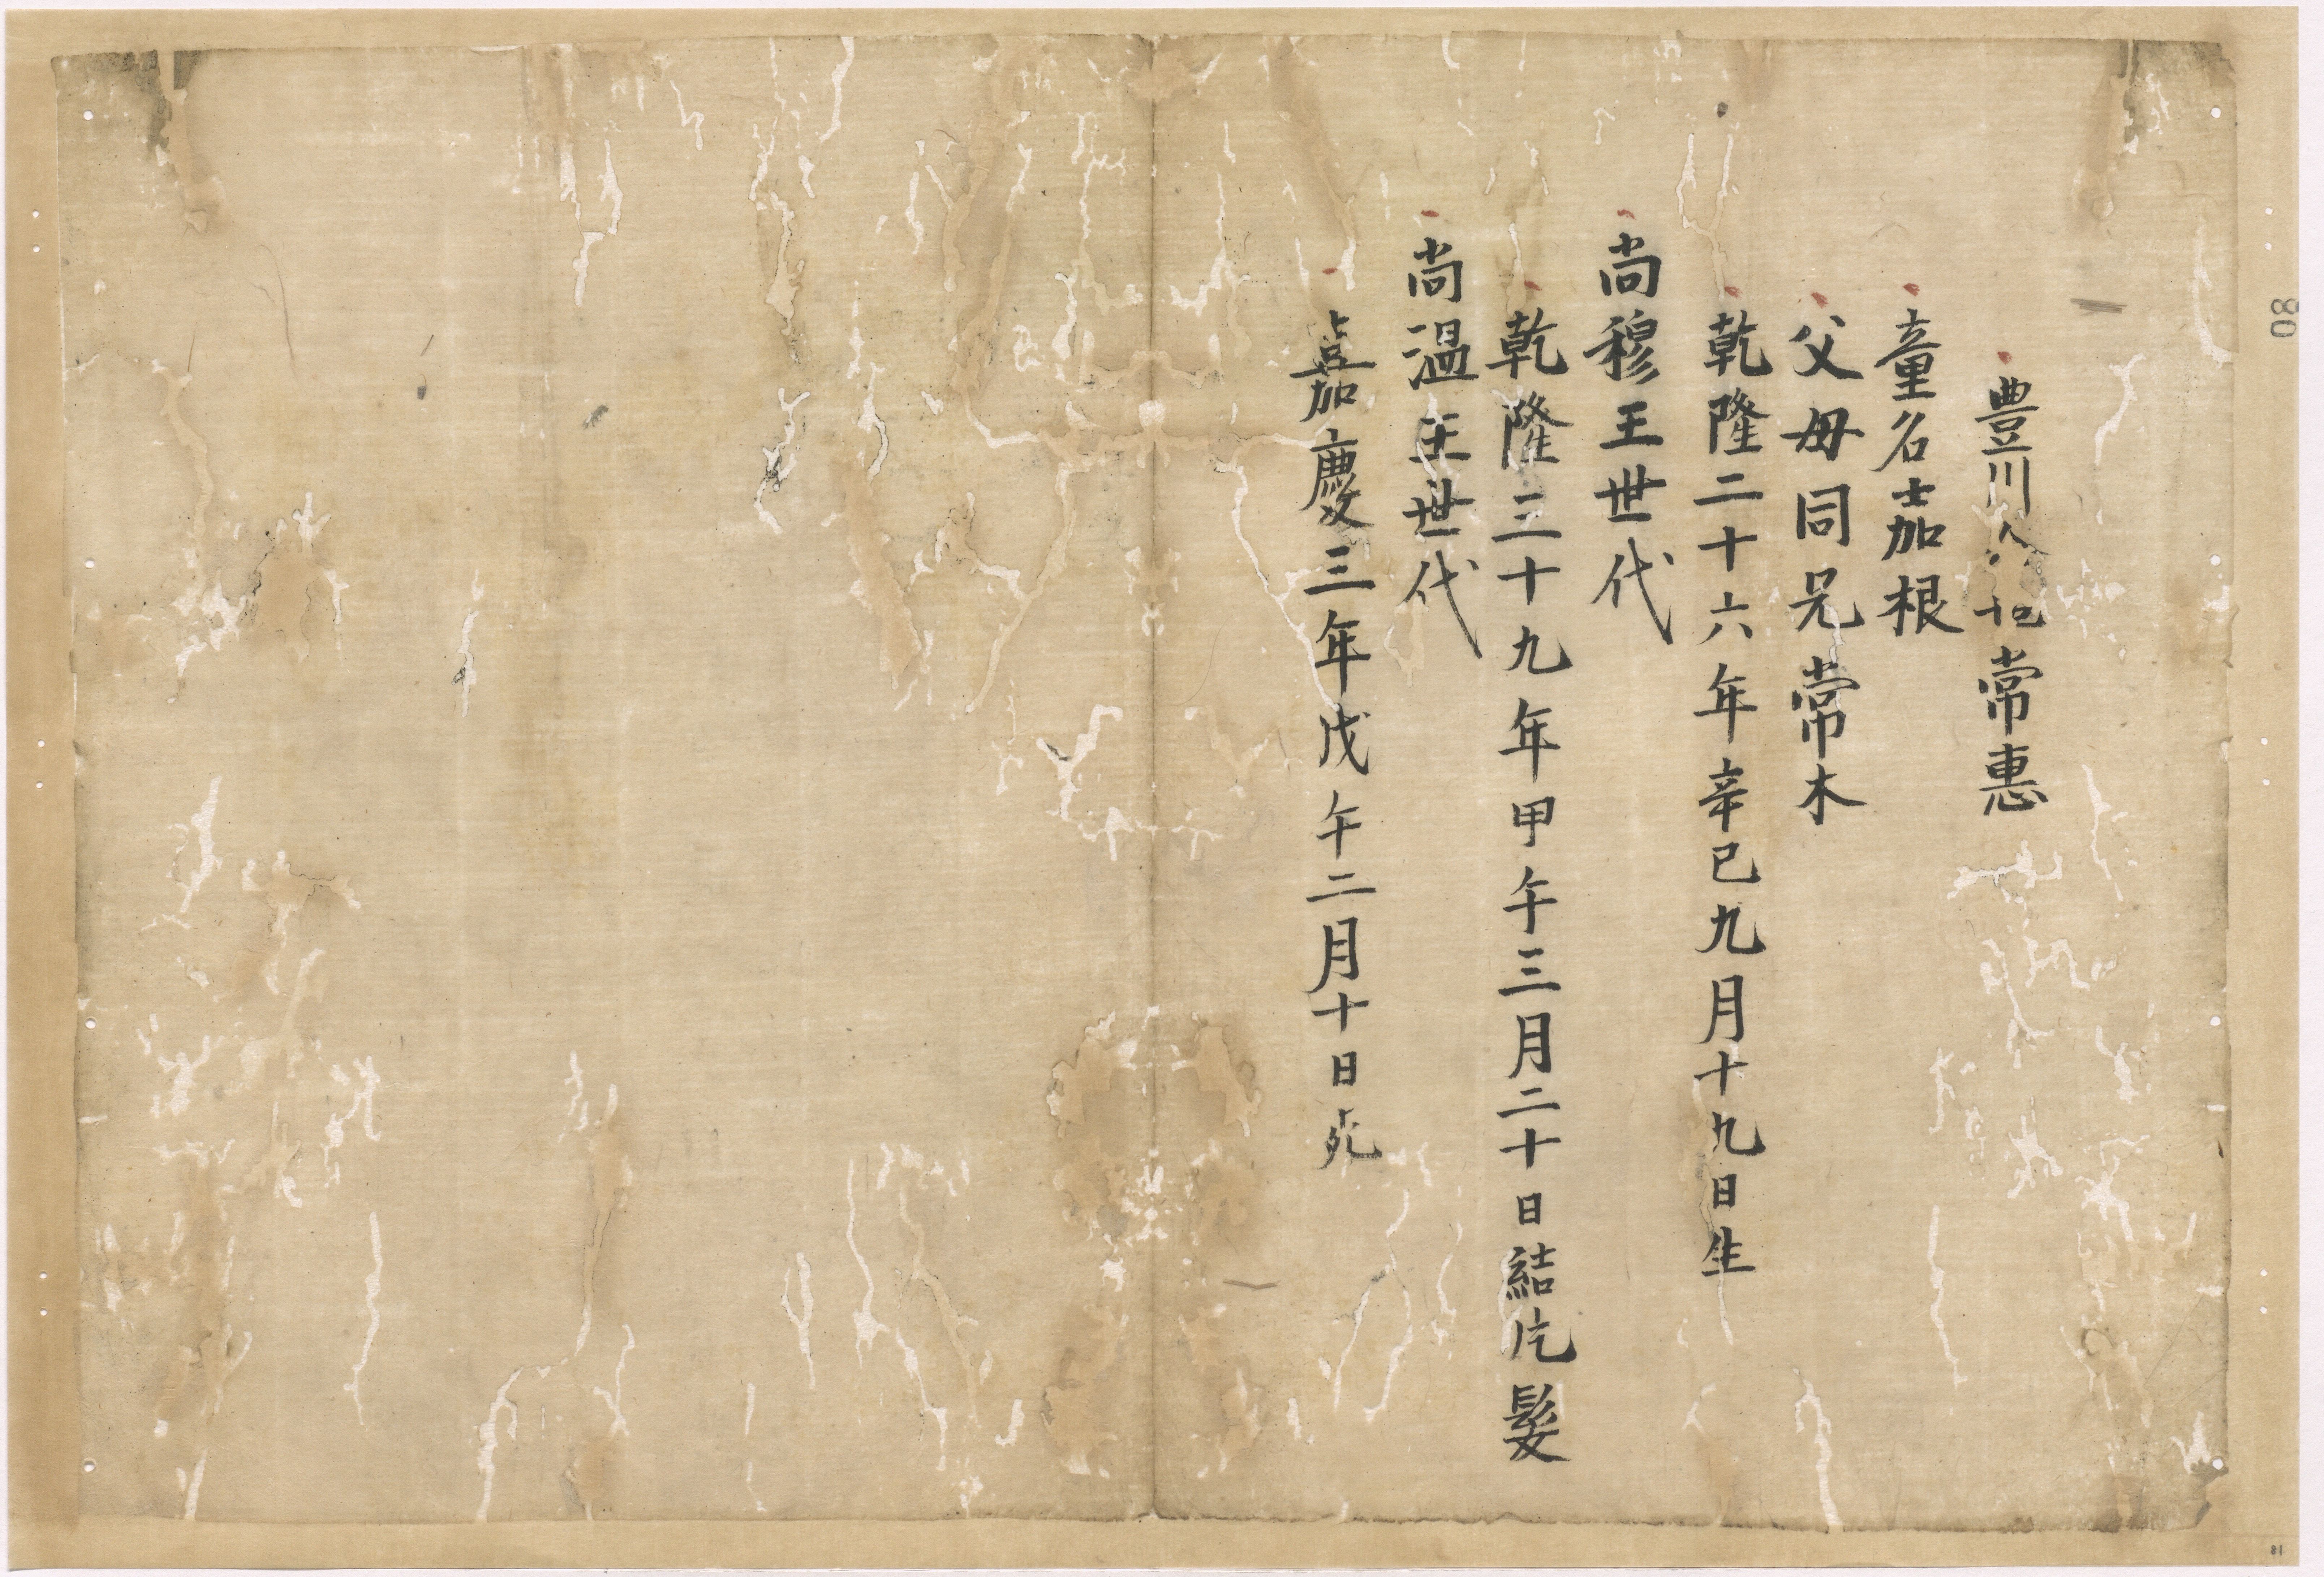 豊川人 常惠
童名嘉根
父母同兄常木
乾隆二十六年辛巳九月十九日生
尚穆王世代
乾隆三十九年甲午三月二十日結片髮
尚温王世代
嘉慶三年戊午二月十日死
80
81